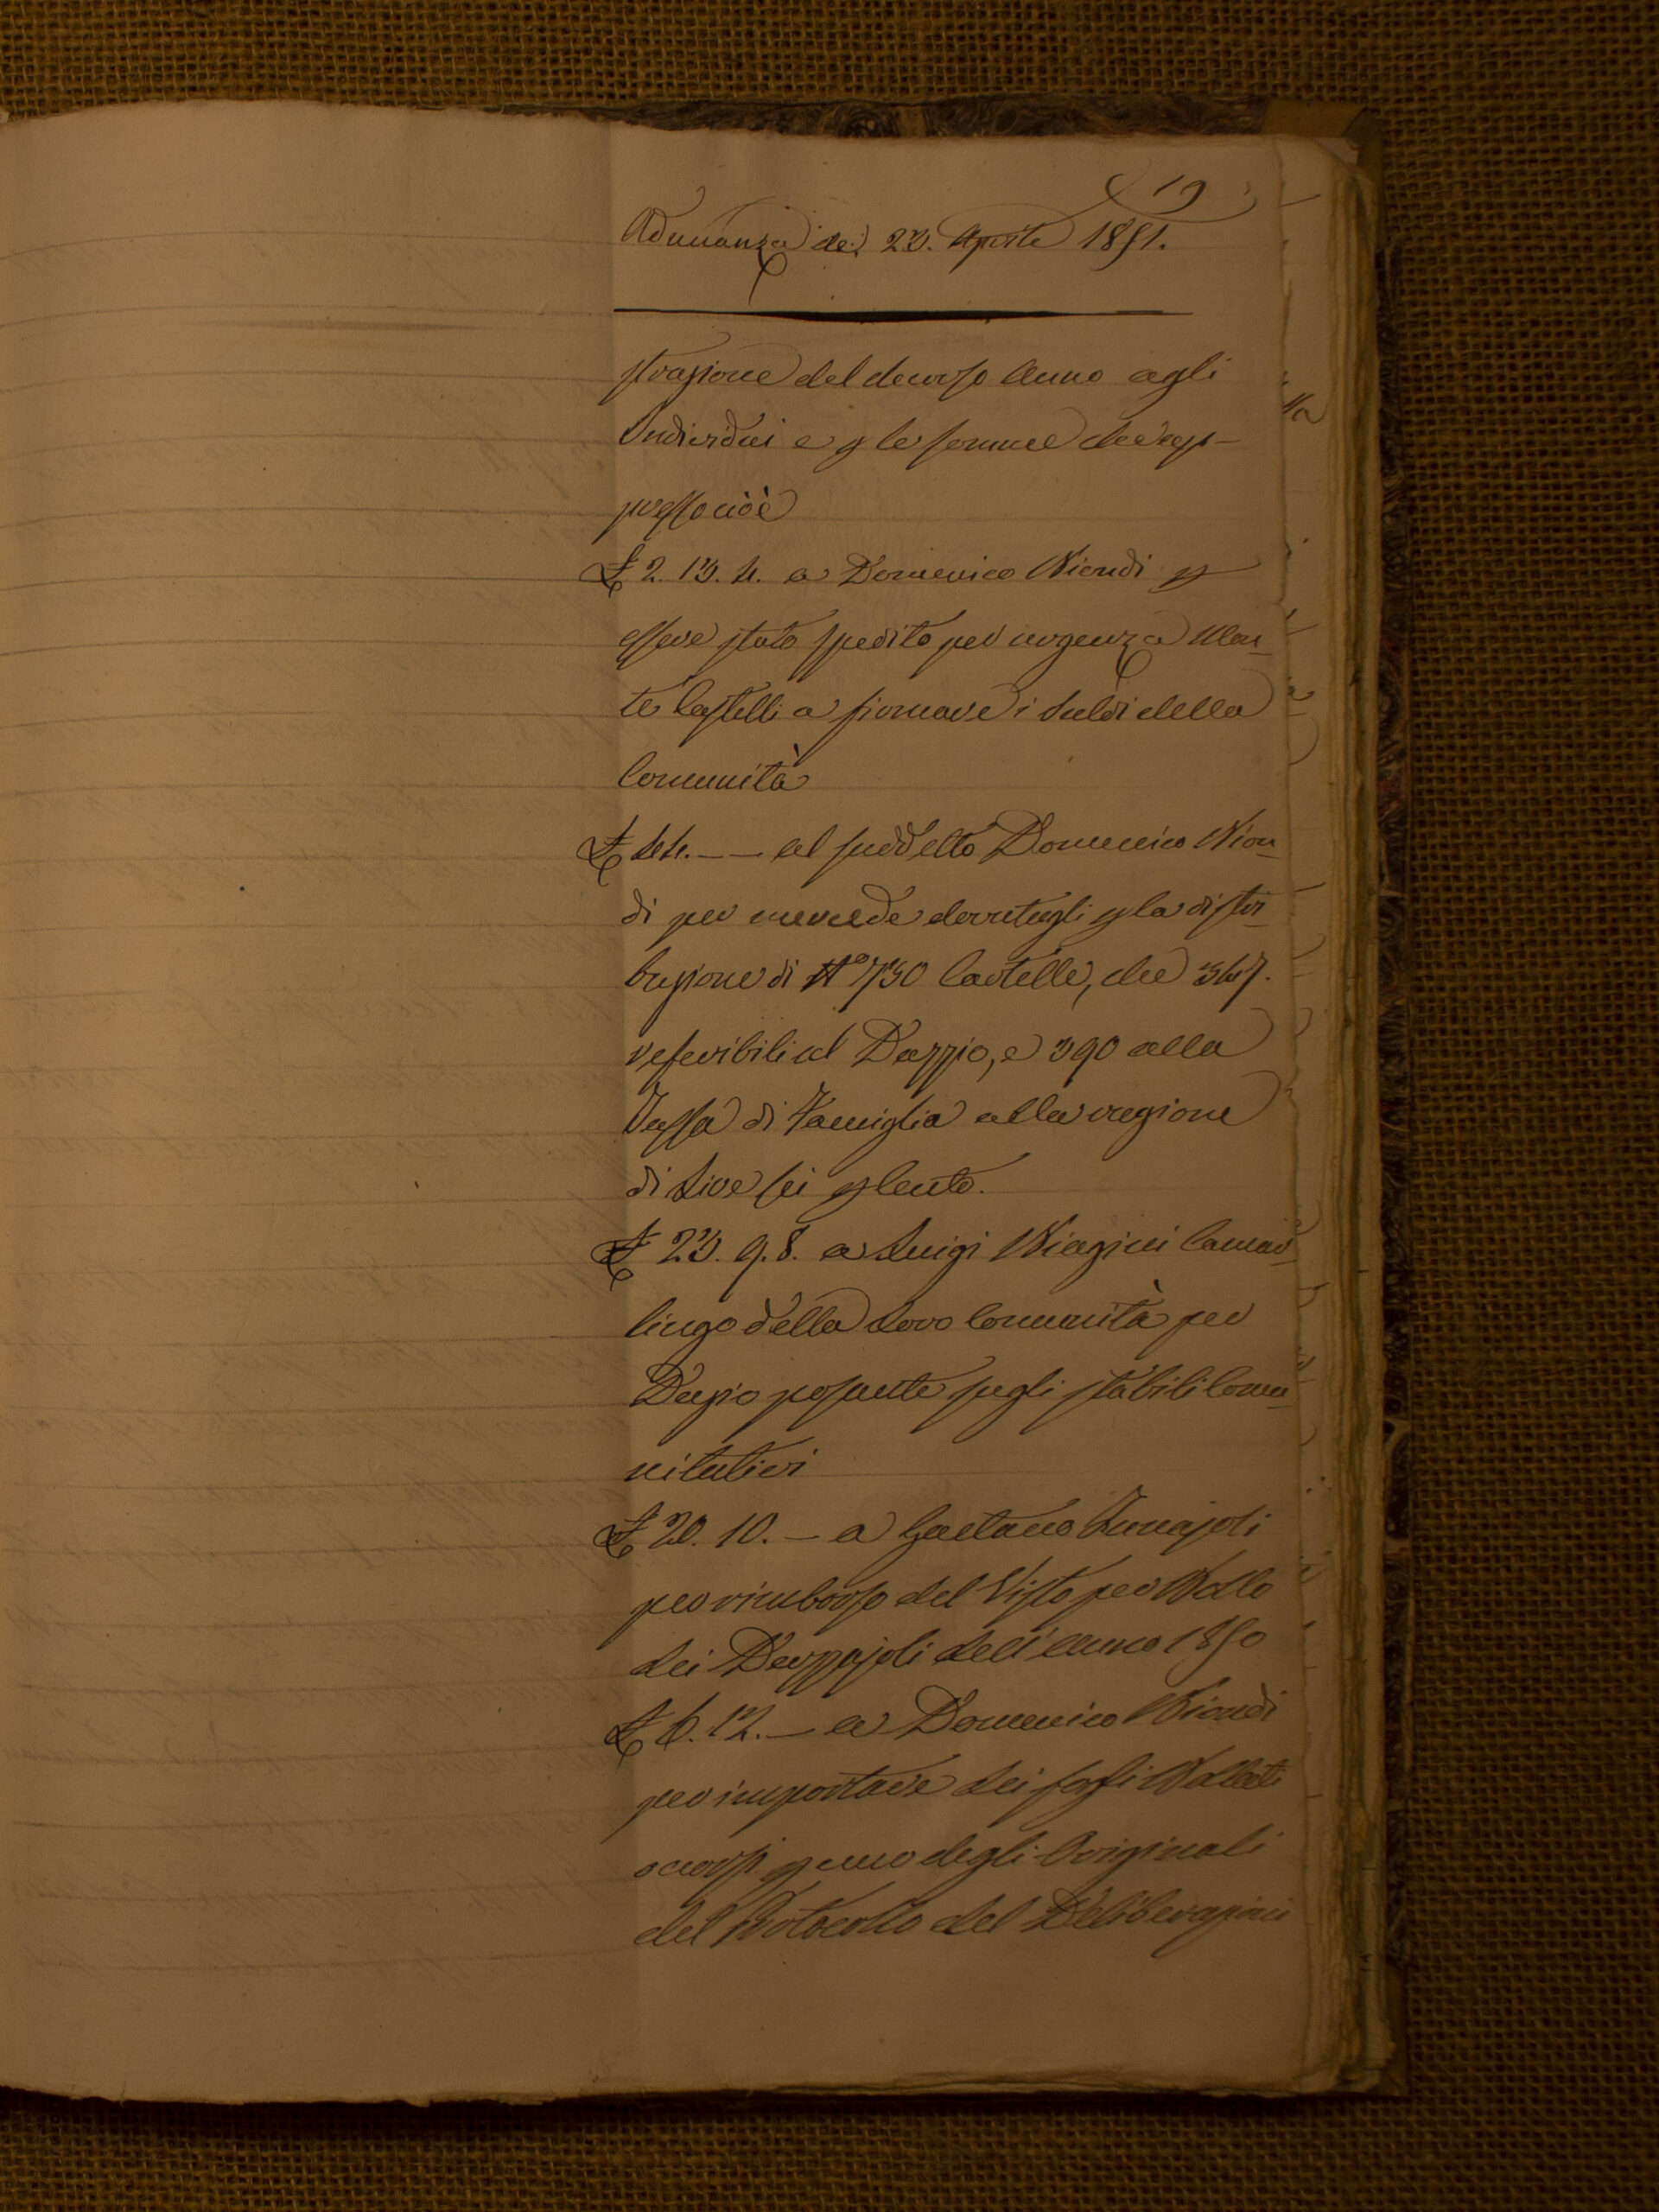 19
Adunanza de' 23. Aprile 1851.
strazione del decorso Anno agli
Individui e p le somme che ap-
presso cioè
£ 2. 13. 4. a Domenico Biondi p
essere stato spedito per urgenza Mon
te Castelli a firmare i Saldi della
Comunità
£ 44. — — al suddetto Domenico Bion
di per mercede dovutagli p la distri
buzione di N° 730 Cartelle, che 347.
referibili al Dazzio, e 390 alla
Tassa di Famiglia alla ragione
di Lire sei p Cento.
£ 23. 9. 8. a Luigi Biagini Camar
lingo della Loro Comunità per
Dazio posante sugli stabili Comu
nitativi
£ 20. 10. — a Gaetano
per rimborso del Visto per Bollo
dei Dazzajoli dell'Anno 1850
£ 6. 12. — a Domenico Biondi
per importare dei fogli Bollati
occorsi p uno degli Originali
del Protocollo del Deliberazioni